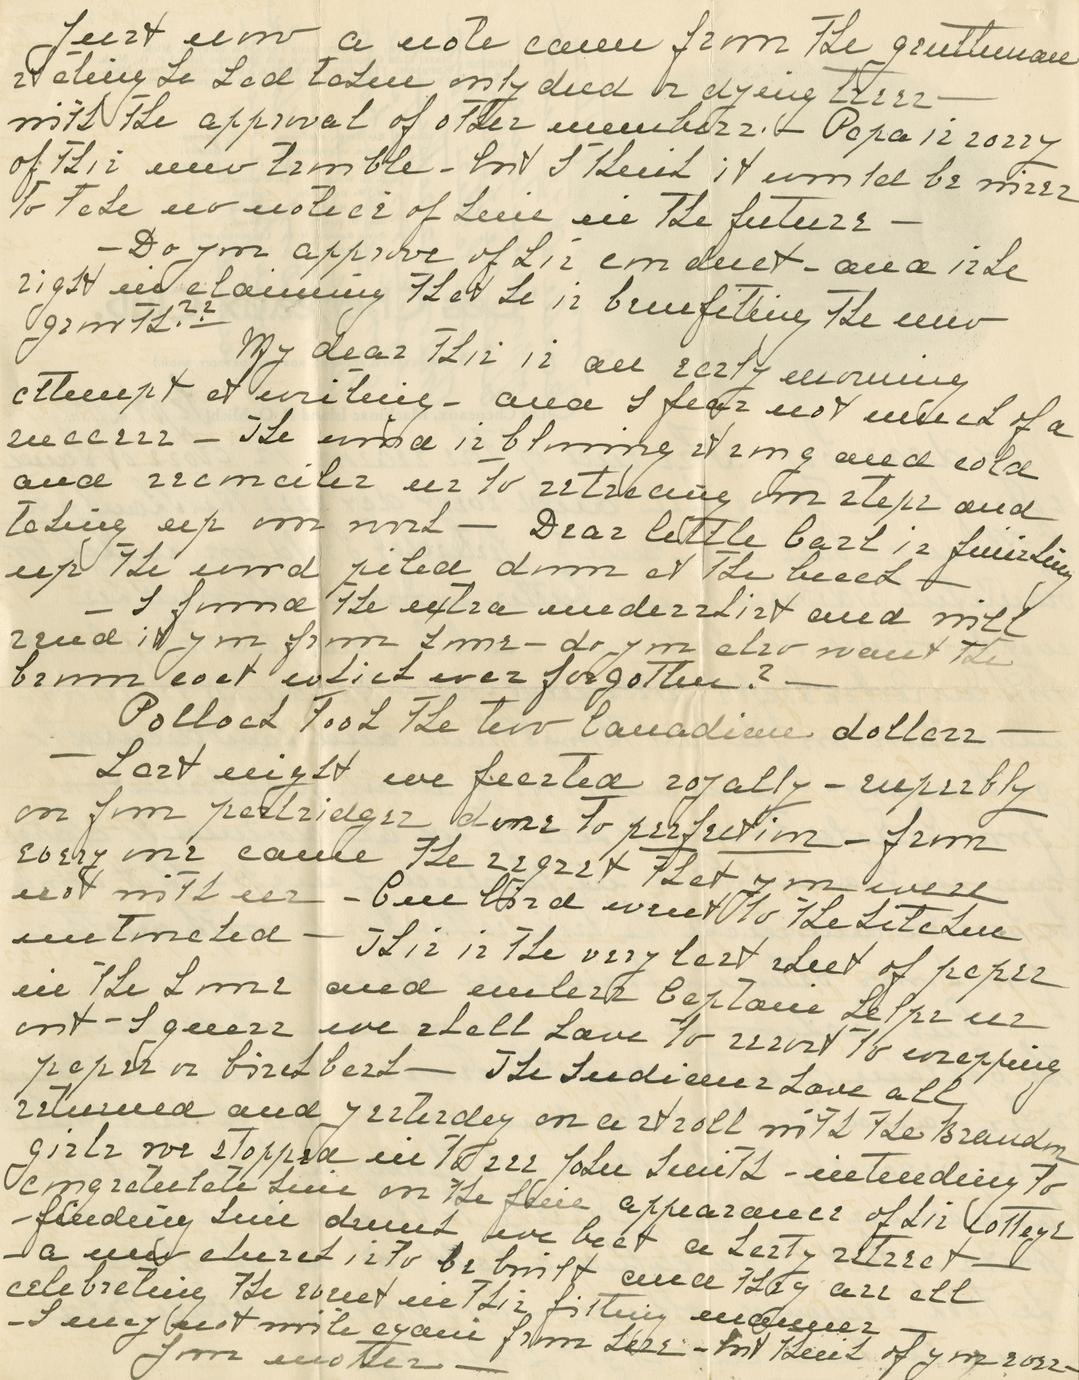 Just now a note came from the gentleman
stating he had taken only dead or dying trees —
with the approval of other members. — Papa is sorry
of this new trouble - but I think it would be wiser
to take no notice of him in the future —
— Do you approve of his conduct - and is he
right in claiming that he is benefiting the new
growth??
My dear this is an early morning
attempt at writing - and I fear not much of a
success — The wind is blowing strong and cold
and reconciles us to retracing our steps and
taking up our work — Dear little Carl is finishing
up the wood piled down at the beach —
— I found the extra undershirt and will
send it you from home - do you also want the
brown coat which was forgotten? —
Pollock took the two Canadian dollars —
— Last night we feasted royally - superbly
on four partridges done to perfection - from
every one came the regret that you were
not with us - One bird went to the kitchen
untouched — This is the very last sheet of paper
in the house and unless Captain helps us
out - I guess we shall have to resort to wrapping
paper or birchbark — The Indians have all
returned and yesterday on a stroll with the Brandon
girls we stopped in to see John Smith - intending to
congratulate him on the fine appearance of his cottage
- finding him drunk we beat a hasty retreat —
- a new church is to be built and they are all
celebrating the event in this fitting manner —
- I may not write again from here - but think of you ever -
Your mother —